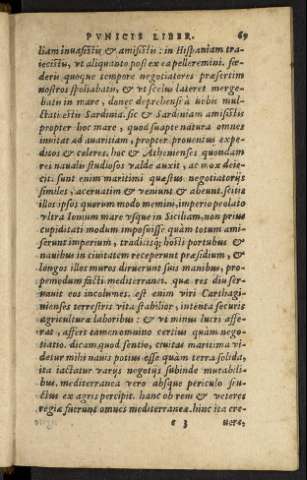 PVNICIS LIBER. 69
liam inuasistis & amisistis: in Hispaniam tra-
iecistis, vt aliquanto post ex ea pelleremini. fœ-
deris quoque tempore negotiatores præsertim
nostros spoliabatis, & vt scelus lateret merge-
batis in mare, donec deprehensi à nobis mul-
ctati estis Sardinia. sic & Sardiniam amisistis
propter hoc mare, quod suapte natura omnes
inuitat ad auaritiam, propter prouentus expe-
ditos & celeres. hoc & Athenienses quondam
rei naualis studiosos valde auxit, ac mox deie-
cit: sunt enim maritimi quæstus negotiatorijs
similes, aceruatim & veniunt & abeunt. scitis
illos ipsos quorum modo memini, imperio prolato
vltra Ionium mare vsque in Siciliam, non prius
cupiditati modum imposuisse quàm totum ami-
serunt imperium, traditisq; hosti portubus &
nauibus in ciuitatem receperunt præsidium, &
longos illos muros diruerunt suis manibus, pro-
pemodum facti mediterranei. quæ res diu ser-
nauit eos incolumes. est enim viri Carthagi-
nienses terrestris vita stabilior, intenta securis
agriculturæ laboribus: & vt minus lucri affe-
rat, affert tamen omnino certius quàm nego-
tiatio. dicam quod sentio, ciuitas maritima vi-
detur mihi nauis potius esse quàm terra solida,
ita iactatur varijs negotijs subinde mutabili-
bus. mediterranea vero absque periculo fru-
ctus ex agris percipit. hanc ob rem & veteres
regiæ fuerunt omnes mediterraneæ. hinc ita cre-
e 3 uere,